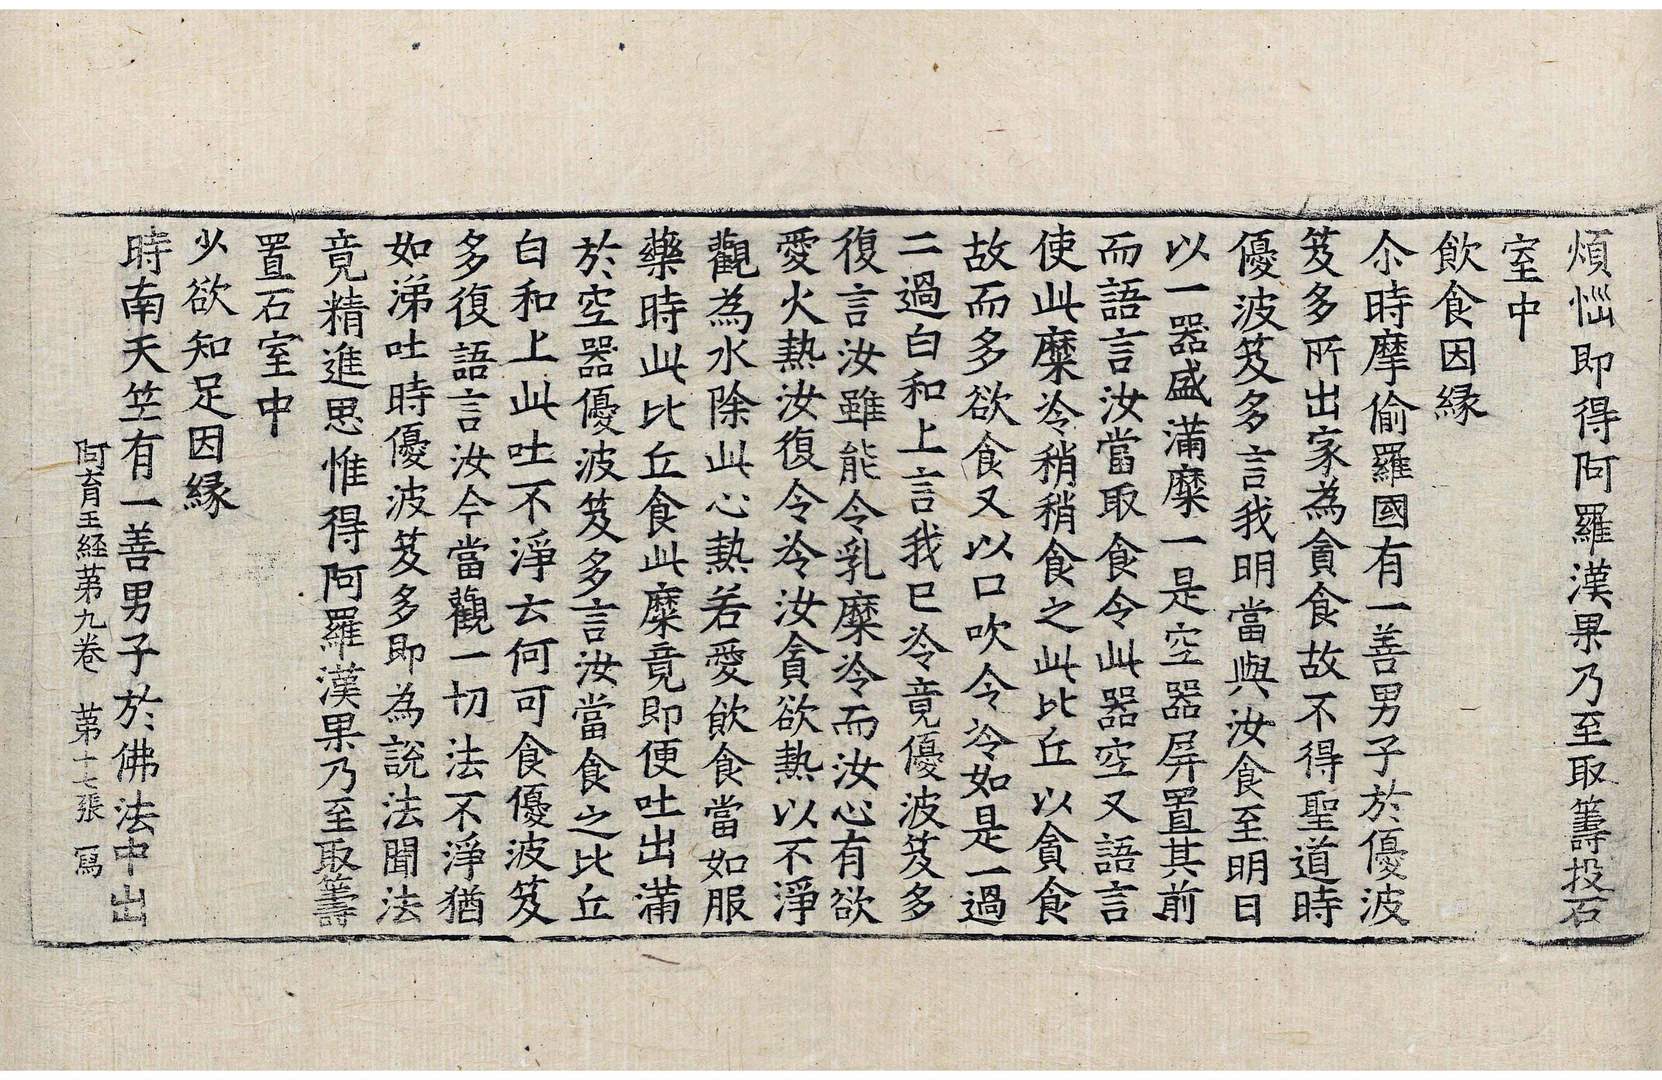 煩惱即得阿羅漢果乃至取籌投石
室中
飲食因縁
尒時摩偷羅國有一善男子於優波
笈多所出家為貪食故不得聖道時
優波笈多言我明當與汝食至明日
以一器盛滿糜一是空器屏置其前
而語言汝當取食令此器空又語言
使此糜冷稍稍食之此比丘以貪食
故而多欲食又以口吹令冷如是一過
二過白和上言我已冷竟優波笈多
復言汝雖能令乳糜冷而汝心有欲
愛火熱汝復令冷汝貪欲熱以不淨
觀為水除此心熱若愛飲食當如服
藥時此比丘食此糜竟即便吐出滿
於空器優波笈多言汝當食之比丘
白和上此吐不淨云何可食優波笈
多復語言汝今當觀一切法不淨猶
如涕吐時優波笈多即為說法聞法
竟精進思惟得阿羅漢果乃至取籌
置石室中
少欲知足因縁
時南天竺有一善男子於佛法中出
阿育王経苐九卷 苐十七張 冩